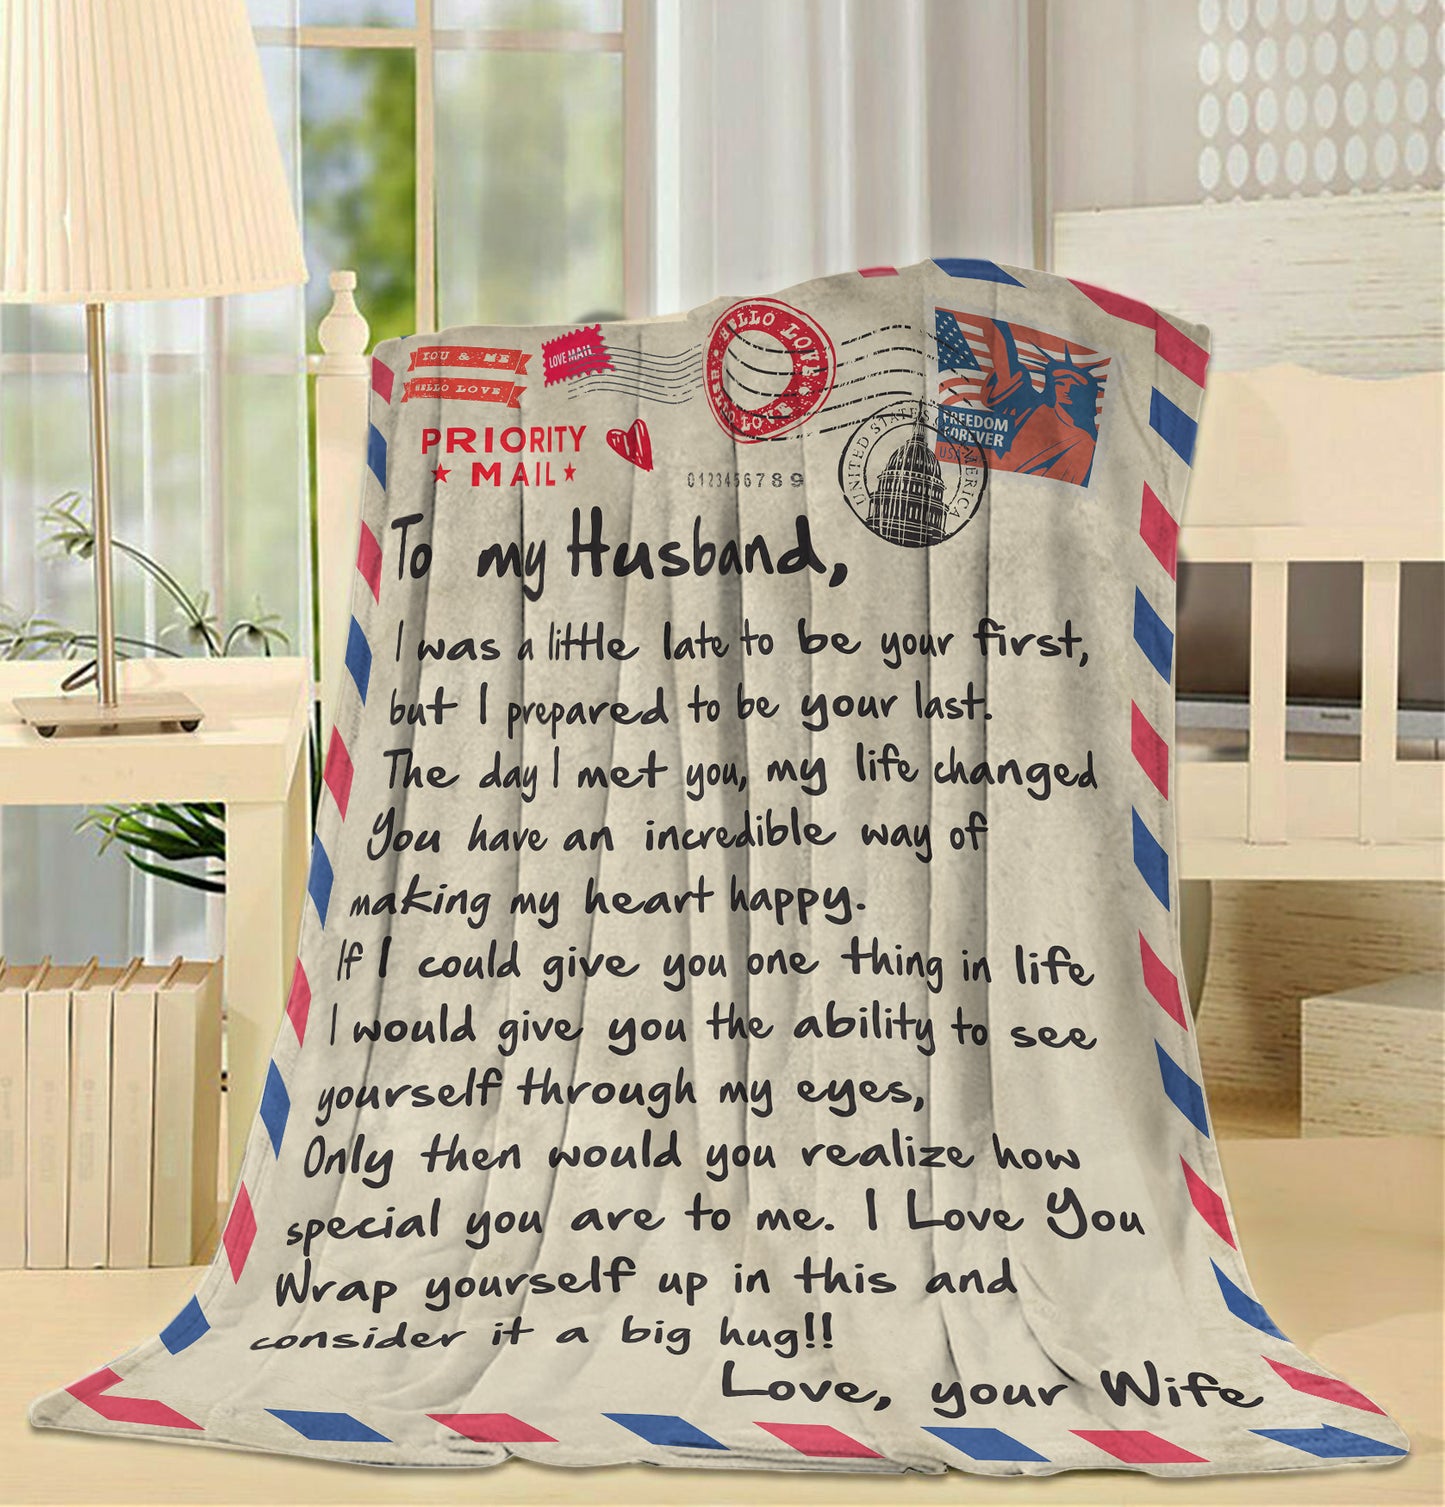 YOU & ME
HELLO LOVE
LOVE MAIL
HELLO LOVE
HELLO LOVE
FREEDOM
FOREVER
USA
UNITED STATES OF AMERICA
PRIORITY
MAIL
0123456789
To my Husband,
I was a little late to be your first,
but I prepared to be your last.
The day I met you, my life changed
You have an incredible way of
making my heart happy.
If I could give you one thing in life
I would give you the ability to see
yourself through my eyes,
Only then would you realize how
special you are to me. I Love You
Wrap yourself up in this and
consider it a big hug!!
Love, your Wife